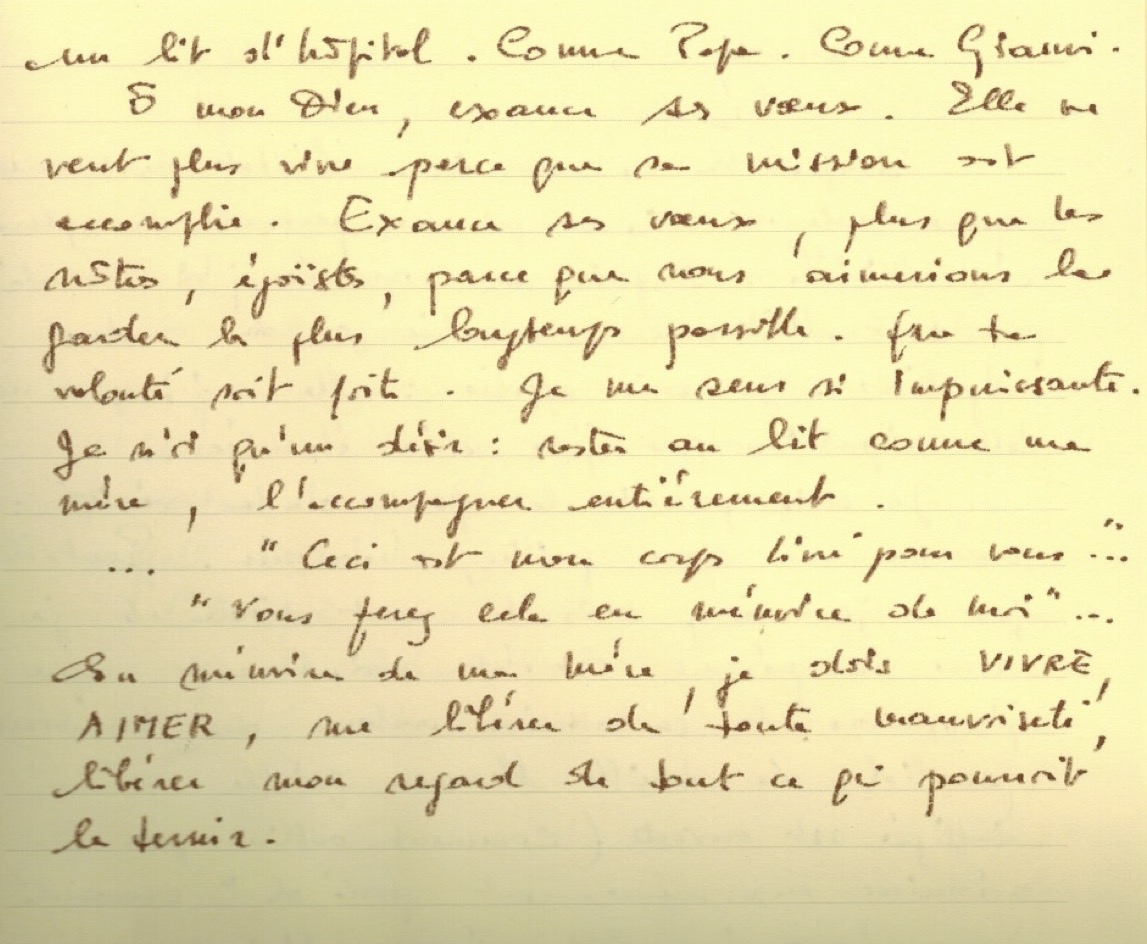 un lit d'hôpital. Comme Papa. Comme Gianni.
Ô mon Dieu, exauce ses vœux. Elle ne
veut plus vivre parce que sa mission est
accomplie. Exauce ses vœux, plus que les
nôtres, égoïstes, parce que nous aimerions la
garder le plus longtemps possible. Que ta
volonté soit faite. Je me sens si impuissante.
Je n'ai qu'un désir : rester au lit comme ma
mère, l'accompagner entièrement.
... "Ceci est mon corps livré pour vous"...
"Vous ferez cela en mémoire de moi"...
En mémoire de ma mère, je dois VIVRE,
AIMER, me libérer de toute mauvaiseté,
libérer mon regard de tout ce qui pourrait
le ternir.